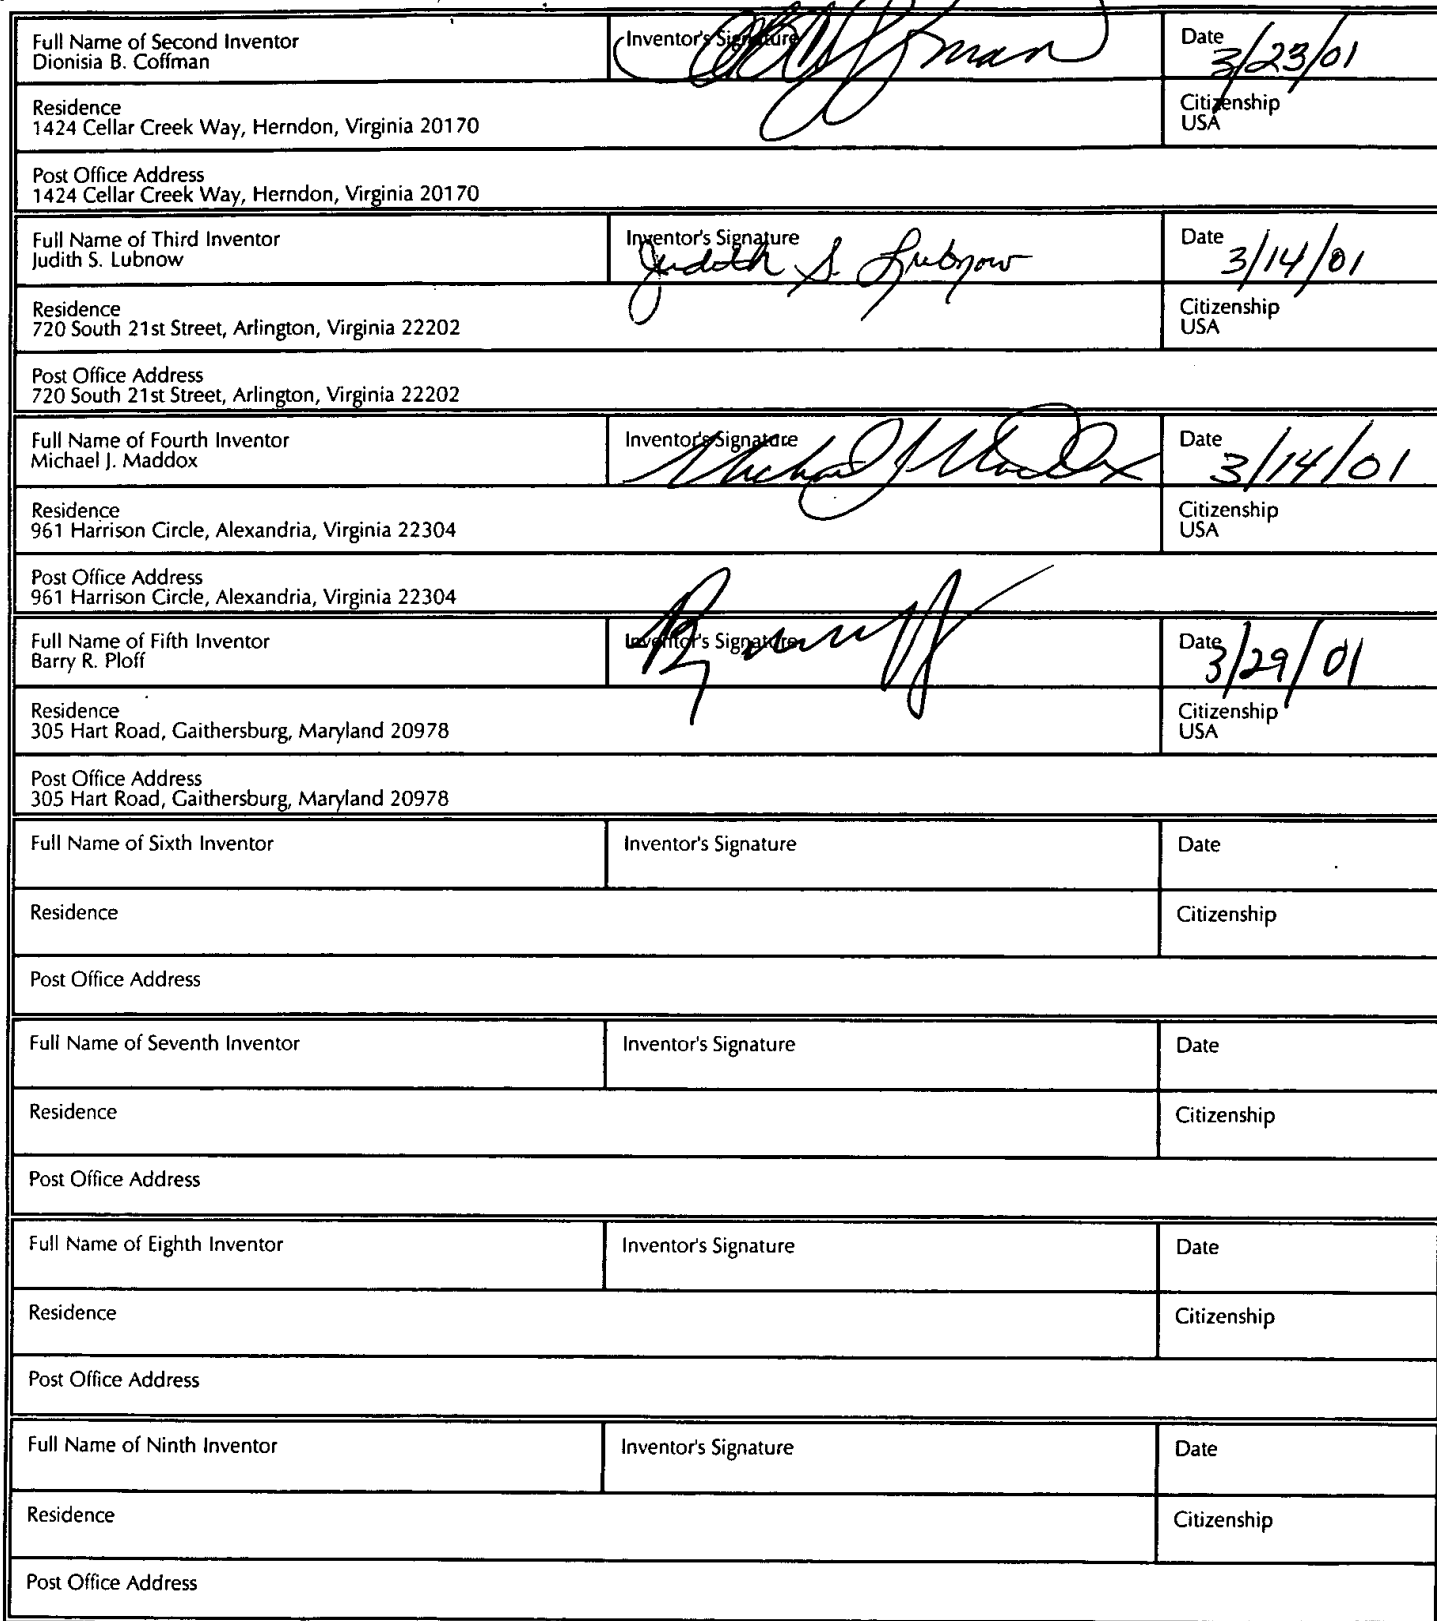 Full Name of Second Inventor
Dionisia B. Coffman
Inventor's Signature
Date
3/23/01
Residence
1424 Cellar Creek Way, Herndon, Virginia 20170
Citizenship
USA
Post Office Address
1424 Cellar Creek Way, Herndon, Virginia 20170
Full Name of Third Inventor
Judith S. Lubnow
Inventor's Signature
Judith S. Lubnow
Date
3/14/01
Residence
720 South 21st Street, Arlington, Virginia 22202
Citizenship
USA
Post Office Address
720 South 21st Street, Arlington, Virginia 22202
Full Name of Fourth Inventor
Michael J. Maddox
Inventor's Signature
Michael J Maddox
Date
3/14/01
Residence
961 Harrison Circle, Alexandria, Virginia 22304
Citizenship
USA
Post Office Address
961 Harrison Circle, Alexandria, Virginia 22304
Full Name of Fifth Inventor
Barry R. Ploff
Inventor's Signature
Date
3/29/01
Residence
305 Hart Road, Gaithersburg, Maryland 20978
Citizenship
USA
Post Office Address
305 Hart Road, Gaithersburg, Maryland 20978
Full Name of Sixth Inventor
Inventor's Signature
Date
Residence
Citizenship
Post Office Address
Full Name of Seventh Inventor
Inventor's Signature
Date
Residence
Citizenship
Post Office Address
Full Name of Eighth Inventor
Inventor's Signature
Date
Residence
Citizenship
Post Office Address
Full Name of Ninth Inventor
Inventor's Signature
Date
Residence
Citizenship
Post Office Address